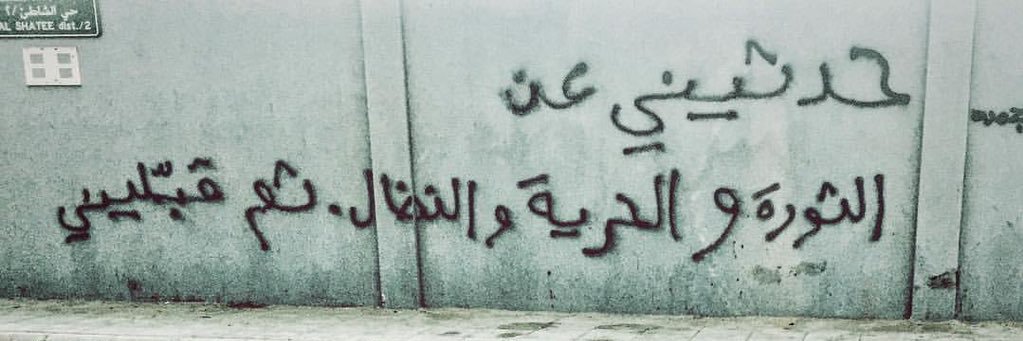 حي الشاطئ/٢
AL SHATEE dist./2
حدثييني عن
الثورة و الحرية والنضال. ثم قبّلييني